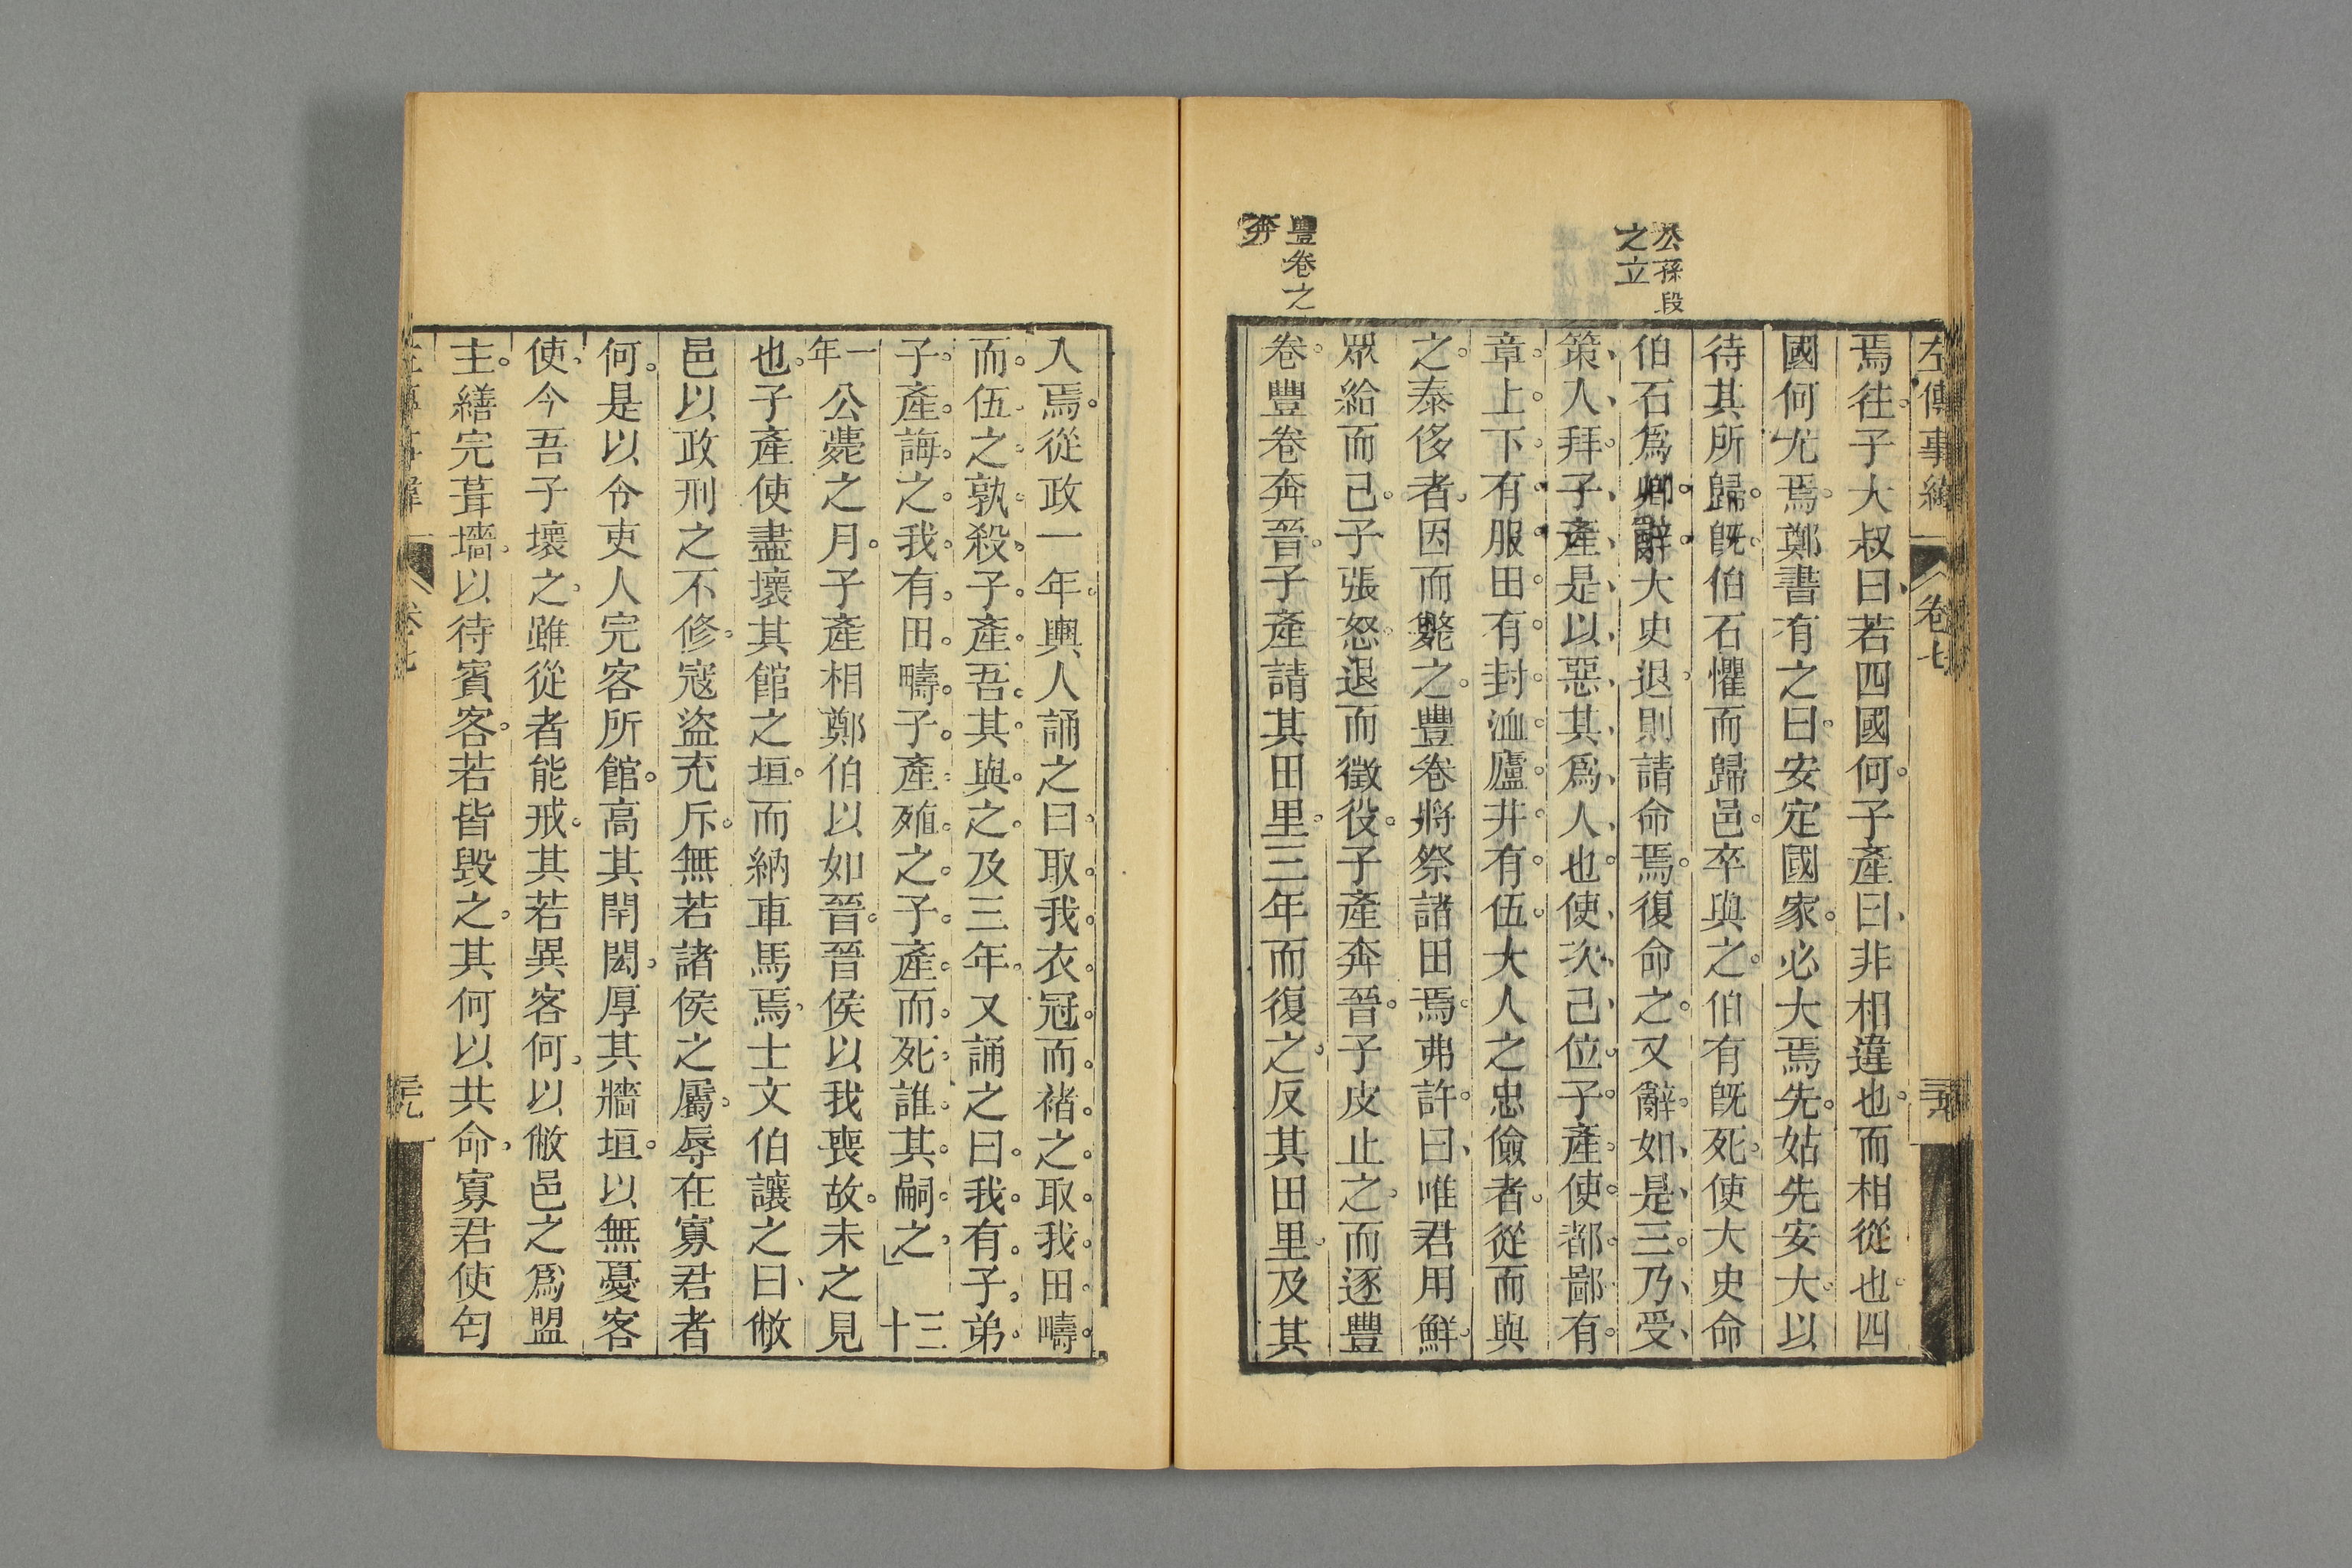 左傳事緯
卷七
公孫段
之立
豐卷之
奔
焉往子大叔曰若四國何子產曰非相違也而相從也四
國何尤焉鄭書有之曰安定國家必大焉先姑先安大以
待其所歸旣伯石懼而歸邑卒與之伯有旣死使大史命
伯石爲卿辭大史退則請命焉復命之又辭如是三乃受
策入拜子產是以惡其爲人也使次己位子產使都鄙有
章上下有服田有封洫廬井有伍大人之忠儉者從而與
之泰侈者因而斃之豐卷將祭請田焉弗許曰唯君用鮮
眾給而已子張怒退而徵役子產奔晉子皮止之而逐豐
卷豐卷奔晉子產請其田里三年而復之反其田里及其
入焉從政一年輿人誦之曰取我衣冠而褚之取我田疇
而伍之孰殺子產吾其與之及三年又誦之曰我有子弟
子產誨之我有田疇子產殖之子產而死誰其嗣之 三十
一年公薨之月子產相鄭伯以如晉晉侯以我喪故未之見
也子產使盡壞其館之垣而納車馬焉士文伯讓之曰敝
邑以政刑之不修寇盜充斥無若諸侯之屬辱在寡君者
何是以令吏人完客所館高其閈閎厚其牆垣以無憂客
使今吾子壞之雖從者能戒其若異客何以敝邑之爲盟
主繕完葺墻以待賓客若皆毀之其何以共命寡君使匄
卷七